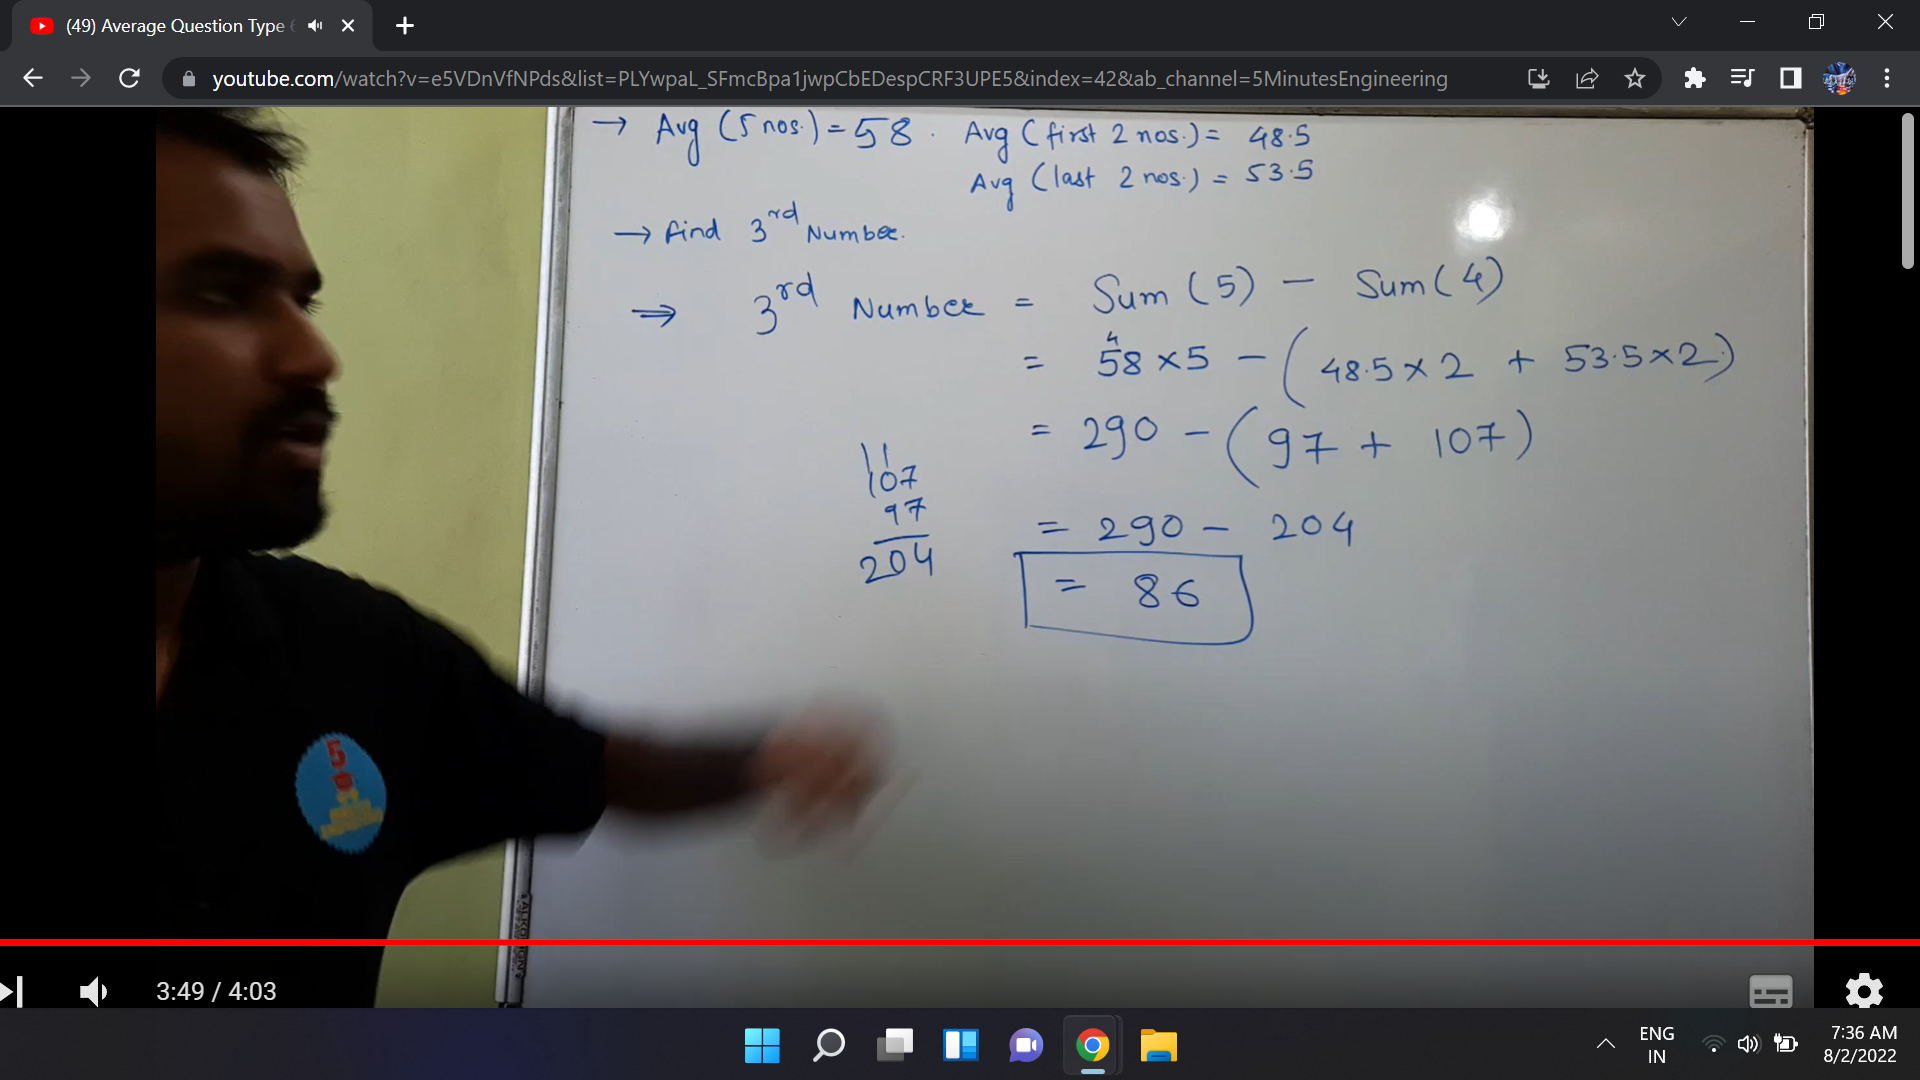 (49) Average Question Type
youtube.com/watch?v=e5VDnVfNPds&list=PLYwpaL_SFmcBpa1jwpCbEDespCRF3UPE5&index=42&ab_channel=5MinutesEngineering
→ Avg (5 nos.) = 58. Avg (first 2 nos.) = 48.5
Avg (last 2 nos.) = 53.5
→ find 3rd Number.
⇒ 3rd Number = Sum (5) - Sum (4)
4
= 58 × 5 - (48.5 × 2 + 53.5 × 2)
= 290 - (97 + 107)
11
107
97
204
= 290 - 204
= 86
5
3:49 / 4:03
ENG
IN
7:36 AM
8/2/2022